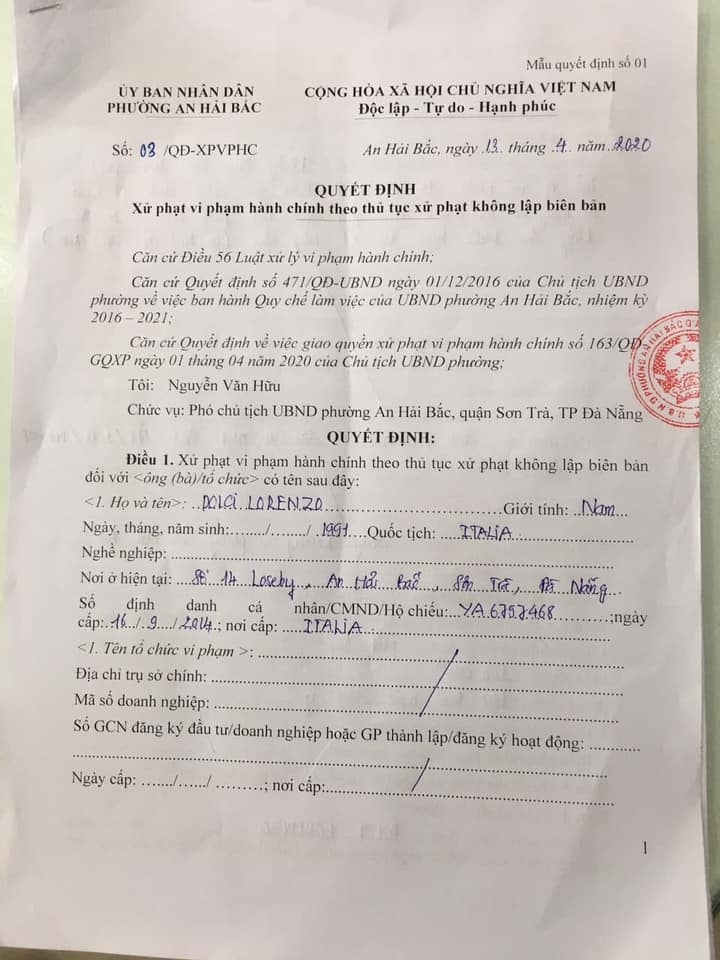 Mẫu quyết định số 01
ỦY BAN NHÂN DÂN
PHƯỜNG AN HẢI BẮC
CỘNG HÒA XÃ HỘI CHỦ NGHĨA VIỆT NAM
Độc lập - Tự do - Hạnh phúc
Số: 03 /QĐ-XPVPHC
An Hải Bắc, ngày .13. tháng .4. năm.2020
QUYẾT ĐỊNH
Xử phạt vi phạm hành chính theo thủ tục xử phạt không lập biên bản
Căn cứ Điều 56 Luật xử lý vi phạm hành chính;
Căn cứ Quyết định số 471/QĐ-UBND ngày 01/12/2016 của Chủ tịch UBND
phường về việc ban hành Quy chế làm việc của UBND phường An Hải Bắc, nhiệm kỳ
2016 – 2021;
Căn cứ Quyết định về việc giao quyền xử phạt vi phạm hành chính số 163/QĐ-
GQXP ngày 01 tháng 04 năm 2020 của Chủ tịch UBND phường;
Tôi: Nguyễn Văn Hữu
Chức vụ: Phó chủ tịch UBND phường An Hải Bắc, quận Sơn Trà, TP Đà Nẵng
QUYẾT ĐỊNH:
Điều 1. Xử phạt vi phạm hành chính theo thủ tục xử phạt không lập biên bản
đối với <ông (bà)/tổ chức> có tên sau đây:
<1. Họ và tên>: DOLCI LORENZO Giới tính: Nam
Ngày, tháng, năm sinh:......../......../ .1991....Quốc tịch: ITALIA
Nghề nghiệp:
Nơi ở hiện tại: Số 14 Loseby, An Hải Bắc, Sơn Trà, Đà Nẵng
Số định danh cá nhân/CMND/Hộ chiếu: YA 6757468 ;ngày
cấp:.16../.9.../2014.; nơi cấp: ITALIA
<1. Tên tổ chức vi phạm >:
Địa chỉ trụ sở chính:
Mã số doanh nghiệp:
Số GCN đăng ký đầu tư/doanh nghiệp hoặc GP thành lập/đăng ký hoạt động:
Ngày cấp: ……./……/ ………; nơi cấp:
1